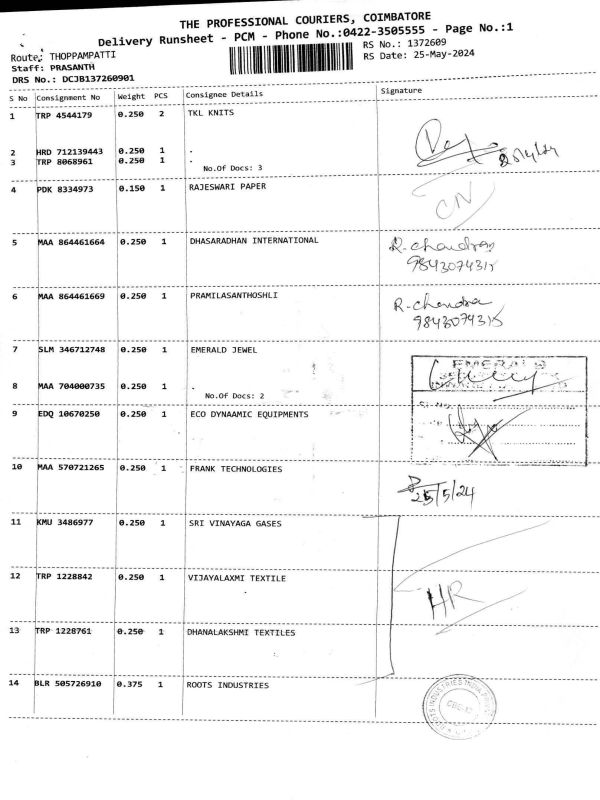 THE PROFESSIONAL COURIERS, COIMBATORE
Delivery Runsheet - PCM - Phone No.:0422-3505555 - Page No.:1
Route: THOPPAMPATTI
RS No.: 1372609
Staff: PRASANTH
RS Date: 25-May-2024
DRS No.: DCJB137260901
S No Consignment No Weight PCS Consignee Details Signature
1 TRP 4544179 0.250 2 TKL KNITS
2 HRD 712139443 0.250 1 .
3 TRP 8068961 0.250 1 .
No.Of Docs: 3
4 PDK 8334973 0.150 1 RAJESWARI PAPER
5 MAA 864461664 0.250 1 DHASARADHAN INTERNATIONAL
R. chandran
9843074315
6 MAA 864461669 0.250 1 PRAMILASANTHOSHLI
R. chandra
9843074315
7 SLM 346712748 0.250 1 EMERALD JEWEL
EMERALD
8 MAA 704000735 0.250 1 .
No.Of Docs: 2
9 EDQ 10670250 0.250 1 ECO DYNAAMIC EQUIPMENTS
10 MAA 570721265 0.250 1 FRANK TECHNOLOGIES
25/5/24
11 KMU 3486977 0.250 1 SRI VINAYAGA GASES
12 TRP 1228842 0.250 1 VIJAYALAXMI TEXTILE
HR
13 TRP 1228761 0.250 1 DHANALAKSHMI TEXTILES
14 BLR 505726910 0.375 1 ROOTS INDUSTRIES
ROOTS INDUSTRIES INDIA